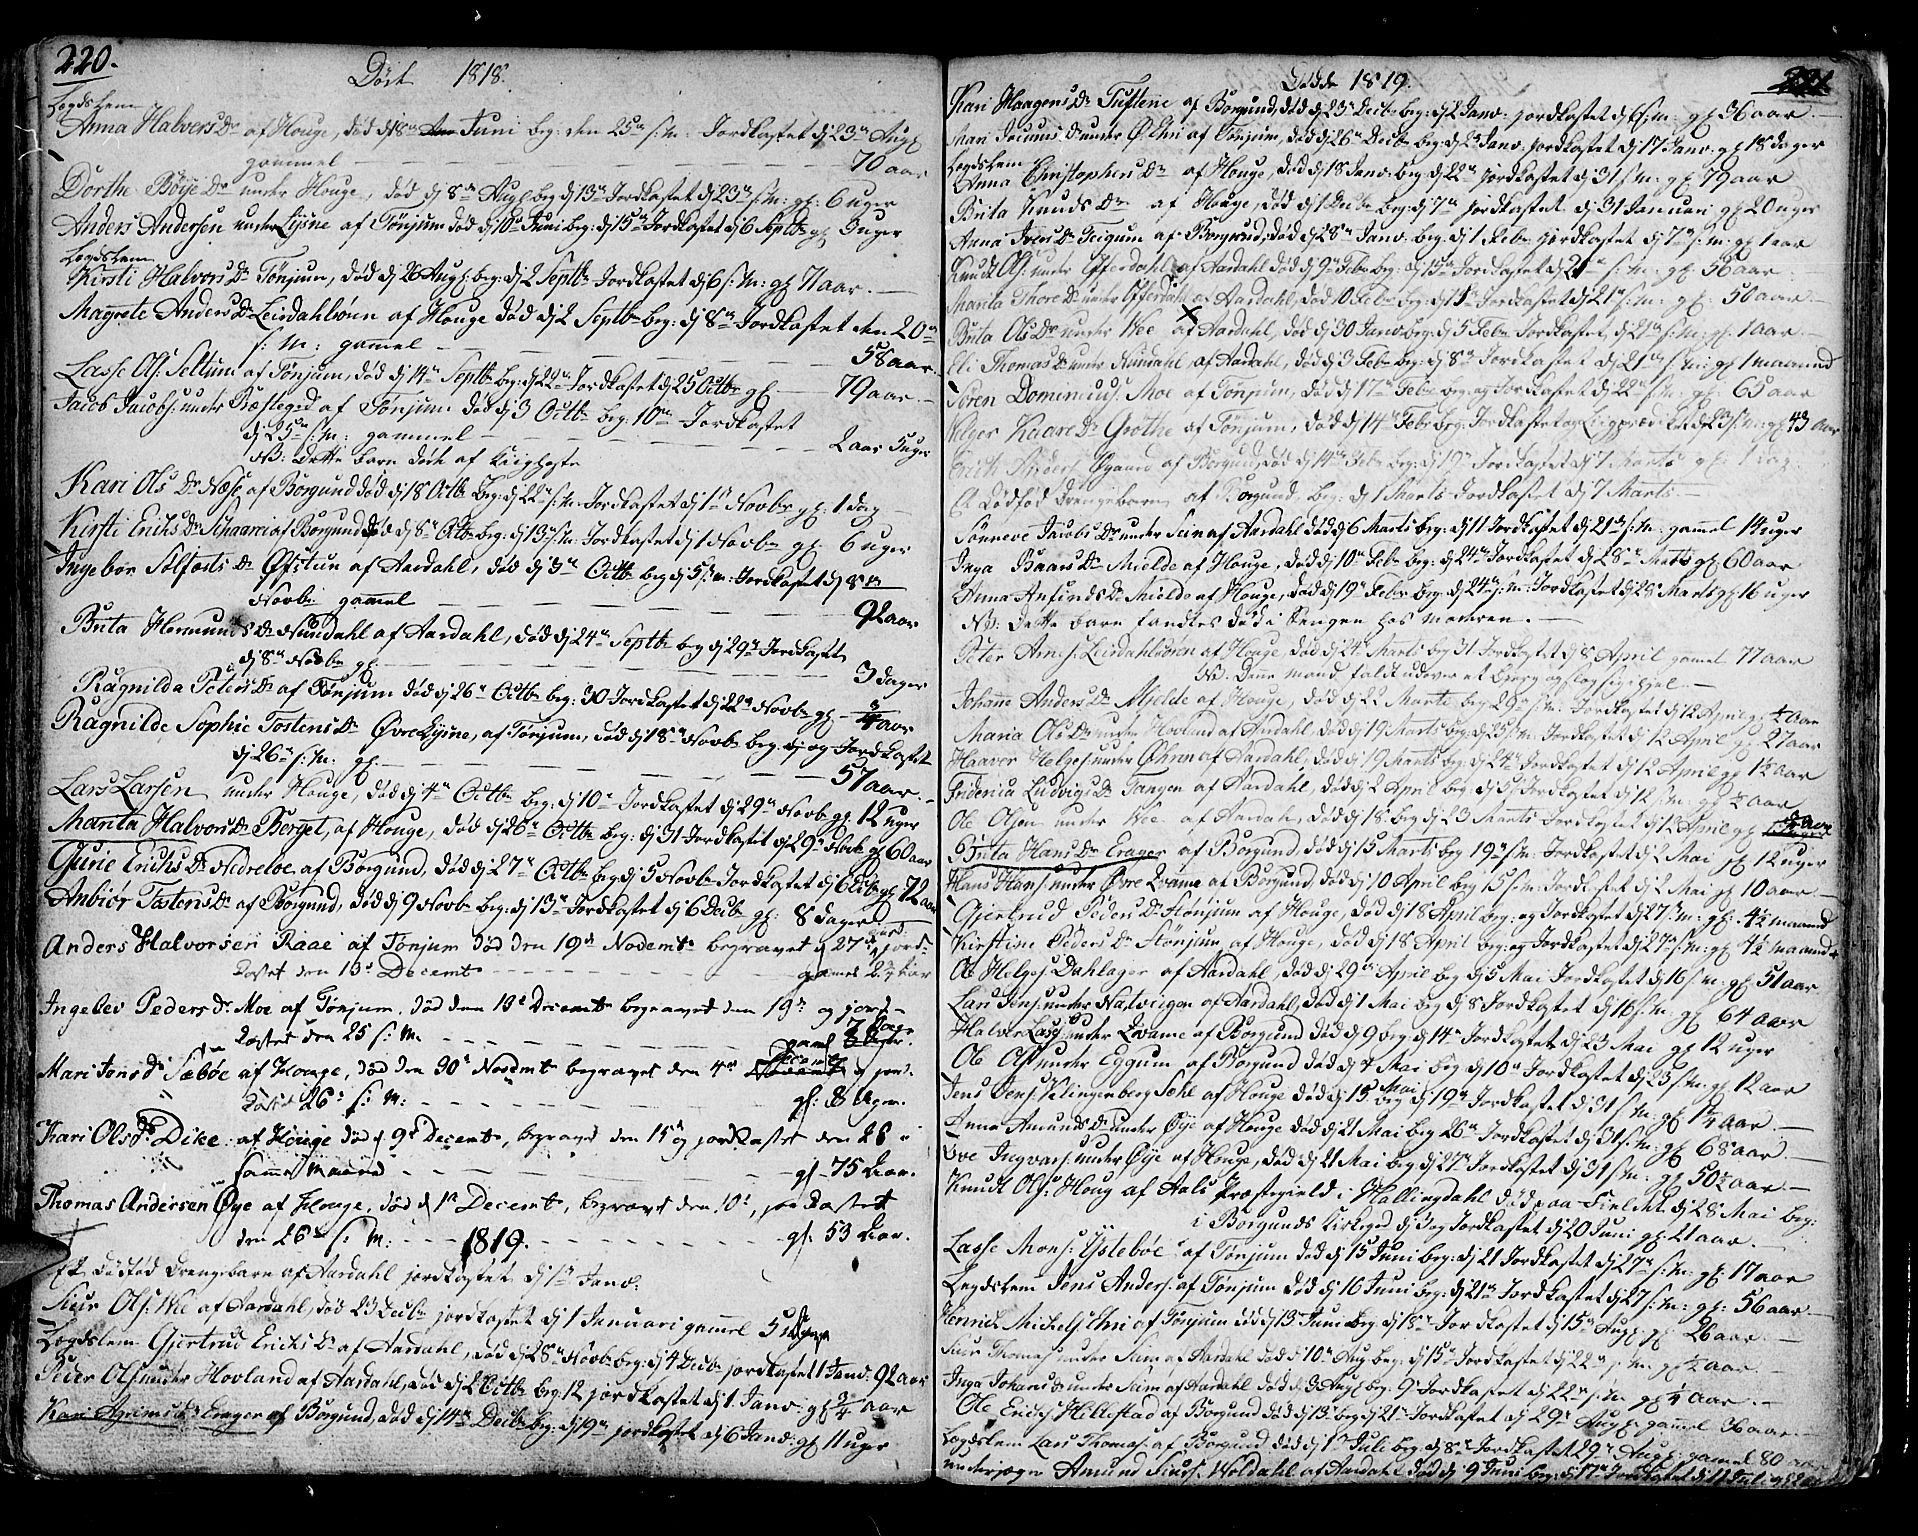 220.
Døde 1818.
Lægdslem
Anna Halvers Dr af Houge, død d 18de Juni beg: den 25de s: M: Jordkastet d 23de Augl
gammel — 70 aar
Dorthe Bøye Dr under Houge, død d 8de Augl beg d 13de Jordkastet d 23de s: M: gl: 6 uger
Anders Andersen under Lysne af Tønjum død d 10de Juni beg: d 15de Jordkastet d 6 Septbr gl 3 uger
Lægdslem
Kirsti Halvors Dr Tønjum, død d 26 Augl. beg: d 2 Septbr Jordkastet d 6 s: M: gl 71 aar. —
Magrete Anders Dr Leirdahlsøren af Houge død d 2 Septbr beg: d 8de Jordkastet den 20de
s: M: gamel — 58 aar.
Lasse Ols: Seltun af Tønjum, død d 14de Septbr beg: d 22de Jordkastet d 25 Octbr gl — 79 aar. —
Jacob Jacobs: under Præstegrd af Tønjum død d 3 Octbr beg: 10de Jordkastet
d 25de s: M: gammel — 2 aar 5 uger
NB: Dette barn døde af Kiighoste
Kari Ols Dr Næse af Borgund død d 18 Octbr beg: d 22de s: M: Jordkastet d 1ste Novbr gl 1 dag —
Kirsti Erichs Dr af Borgund død d 8de Octbr beg: d 13de s: M: Jordkastet d 1 Novbr gl 6 uger
Ingebør Solfæsts Dr Øfstun af Aardahl, død d 3de Octbr beg d 5 s: M: Jordkastet d 8de
Novbr gamel — 92 aar
Brita Hermunds Dr Nundahl af Aardahl, død d 24de Septbr beg d 29de Jordkastet
d 8de Novbr gl — 3 dager
Ragnilda Peters Dr af Tønjum død d 26de Octbr beg: 30 Jordkastet d 22de Novbr gl — 3/4 aar
Ragnilde Sophie Tostens Dr Øvre Lysne, af Tønjum, død d 18de Novbr beg: d og Jordkastet
d 26de s: M: gl. — 57 aar. —
Lars Larsen under Houge, død d 4de Octbr beg: d 10de Jordkastet d 29de Novb gl: 12 uger
Marita Halvors Dr Berget, af Houge, død d 26de Octbr beg: d 31 Jordkastet d 29de Novb gl 60 aar
Gurie Erichs Dr Nedreloe af Borgund, død d 27de Octbr beg d 5 Novbr Jordkastet d 6 Decbr gl 72 aar
Anbiør Tostens Dr af Borgund, død d 9 Novbr beg: d 13de Jordkastet d 6 Decb gl: 8 dager
Anders Halvorsen Raae af Tønjum død den 19de Novembr begravet d 27de jord-
kastet den 13de Decembr — gamel 2 1/4 aar
Ingebor Peders Dr Moe af Tønjum, død den 19de Decembr begravet den 19de og jord-
kastet den 25 s: M. — gaml 7 Dage
Mari Jons Dr Sæbøe af Houge, død den 30te Novbr begravet den 4de Decembr og jord-
kastet 26de s: M: — gl: 8 Uger.
Kari Ols Dr Dike: af Houge død d 9de Decembr, begravet den 15de og jordkastet den 26
samme Maaned — gl. 75 Aar.
Thomas Andersen Øye af Houge, død d 1ste Decembr, begravet den 10de, jordkastet
den 26de s: M: — gl. 53 Aar.
1819.
Et dødfød Drengebarn af Aardahl jordkastet d 1ste Janv:
Siur Ols: Wee af Aardahl, død 23 Decbr jordkastet d 1 Januari gammel 5 uger
Lægdslem Gjertrud Erichs Dr af Aardahl, død d 28de Novbr beg: d 4 Decbr jordkastet 1 Janv: 92 aar
Peder Ols: under Hovland af Aardahl, død d 2 Octbr beg: 12 jordkastet d 1. Janv: gl 3/4 aar
Kari Dr Erager af Borgund, død d 14de Decbr beg: d 19de jordkastet d 6 Janv: gl 11 uger
Døde 1819.
221.
Kari Haagens Dr Tuftene af Borgund, død d 23de Decbr beg: d 2 Janv: jordkastet d 6 s: M: gl 36 aar. —
Mari Dr under Øhri af Tønjum, død d 26de Decbr beg: d 2 Janv: jordkastet d 17 Janv: gl 18 dager
Lægdslem
Anna Christophers Dr af Houge, død d 18 Janv: beg: d 22de jordkastet d 31 s: M: gl 79 aar
Brita Knuds Dr af Houge, død d 1 Decbr beg: d 7de jordkastet d 31 Januari gl 20 uger
Anna Ivers Dr af Borgund, død d 28de Janv: beg: d 1 Febr jordkastet d 7de s: M: gl 1 aar
Knud Ols: under Offerdahl af Aardahl død d 9de Febr beg: d 15de Jordkastet d 21de s: M: gl 56 aar: —
Marita Thore Dr under Offerdahl af Aardahl, død 10 Febr beg: d 15de Jordkastet d 21de s: M: gl: 50 aar —
Brita Ols Dr under Wee af Aardahl, død d 30 Janv: beg: d 5 Febr Jordkastet d 21de s: M: gl: 1 aar —
Eli Thomas Dr under Nundahl af Aardahl, død d 3 Febr beg: d 8de Jordkastet d 21de s: M: gl 1 maaned
Søren Dominicus: Moe af Tønjum, død d 17de Febr beg: og Jordkastet d 22de s: M: gl: 65 aar
Kaare Dr Grøthe af Tønjum, død d 14de Febr beg: Jordkastet og Liigprædiket d 23 s: M: gl 43 aar
Erich Anders: Øygaard af Borgund, død d 14de Febr beg: d 19de Jordkastet d 7 Marts gl: 1 dag
Et dødfød Drengebarn af Borgund, beg: d 1 Marts Jordkastet d 7 Marts —
Sønneve Jacobs Dr under Seim af Aardahl død d 6 Marts beg: d 11 Jordkastet d 21de s: M: gammel 14 uger
Inga Baars Dr Mielde af Houge, død d 10de Febr beg: d 24de Jordkastet d 28de Marts gl 60 aar
Anna Anfinds Dr Mielde af Houge, død d 19de Febr beg: d 24de s: M: Jordkastet d 28 Marts gl 16 uger
NB: Dette barn fandtes død i Sengen hos moderen. —
Peter Arnes: Leirdahlsøren af Houge, død d 24de Marts beg 31 Jordkastet d 8 April gammel 77 aar
NB. Denne mand faldt udover et bierg og slog sig ihjel. —
Johanne Anders Dr Mjelde af Houge, død d 22 Marts beg 29de s: M: Jordkastet d 12 April gl 1/2 aar
Maria Ols Dr under Hovland af Aardahl, død d 19 Marts beg: d 25 s: M: Jordkastet d 12 April gl 27 aar
Haaver Helges: under Øhren af Aardahl, død d 19 Marts beg: d 24de Jordkastet d 12 April gl 1 1/2 aar
Friderica Ludvigs Dr Tangen af Aardahl, død d 2 April beg: d 5 Jordkastet d 12 s: M: gl 1/2 aar
Ole Olsen under Wee af Aardahl, død d 18 beg: d 23 Marts Jordkastet d 12 April gl aar
Brita Hans Dr Erager af Borgund, død d 15 Marts beg 19de s: M: Jordkastet d 2 Mai gl 12 uger
Hans Hans: under Øvre Qvame af Borgund, død d 10 April beg 15 s: M: Jordkastet d 2 Mai gl 10 aar —
Gjertrud Peders Dr Stønjum af Houge, død d 18 April beg: og Jordkastet d 27de s: M: gl: 4 1/2 maaned
Kirstine Peders Dr Stønjum af Houge, død d 18 April beg: og Jordkastet d 27de s: M: gl 4 1/2 maaned
Ole Helges: Dahlager af Aardahl, død d 29de April beg d 5 Mai Jordkastet d 16 s: M: gl 51 aar
Lars Jens: under Natvigen af Aardahl, død d 1 Mai beg d 8 Jordkastet d 16 s: M: gl 64 aar
Halvor Lars: under Qvame af Borgund død d 9 beg: d 14de Jordkastet d 23 Mai gl 12 uger
Ole Ols: under Eggum af Borgund død d 4 Mai beg: d 10de Jordkastet d 23 s: M: gl 12 aar
Jens Jens: Klingenberg Sæhl af Houge død d 15 Mai beg d 19de Jordkastet d 31 s: M: gl 1 1/4 aar
Anna Amunds Dr under Øye af Houge død d 21 Mai beg 26de Jordkastet d 31 s: M: gl 68 aar —
Ove Ingvars: under Øye af Houge, død d 21 Mai beg d 27de Jordkastet d 31 s: M: gl 50 1/2 aar
Knud Ols: Houg af Aals Præstegield i Hallingdahl død paa Fieldet d 28 Mai beg:
i Borgunds Kirkegd d 3 og Jordkastet d 20 Juni gl 21 aar
Lasse Mons: Ystebøe af Tønjum død d 15 Juni beg: d 21 Jordkastet d 27de s: M: gl 17 aar
Lægdslem Jens Anders: af Tønjum død d 16 Juni beg: d 21de Jordkastet d 27 s: M: gl: 56 aar
Henrick Michels: Ehri af Tønjum død d 13 Juni beg: d 18de Jordkastet d 15de Augl gl 26 aar. —
Siur Thomas: under Seim af Aardahl død d 10de Aug beg: d 15de Jordkastet d 22de s: M: gl 1/2 aar
Inga Johans Dr under Seim af Aardahl død d 3 Augl beg: 9de Jordkastet d 22de s: M: gl 1/4 aar —
Ole Erichs: Hillestad af Borgund død d 13 beg: d 21de Jordkastet d 29de Augl gammel 36 aar —
Lægdslem Lars Thomas: af Borgund død d 1ste Juli beg: d 8de Jordkastet 29de Augl gamel 80 aar
Amund Siurs: Woldahl af Aardahl død d 9 Juni beg: d 17de Jordkastet d 11 Juli